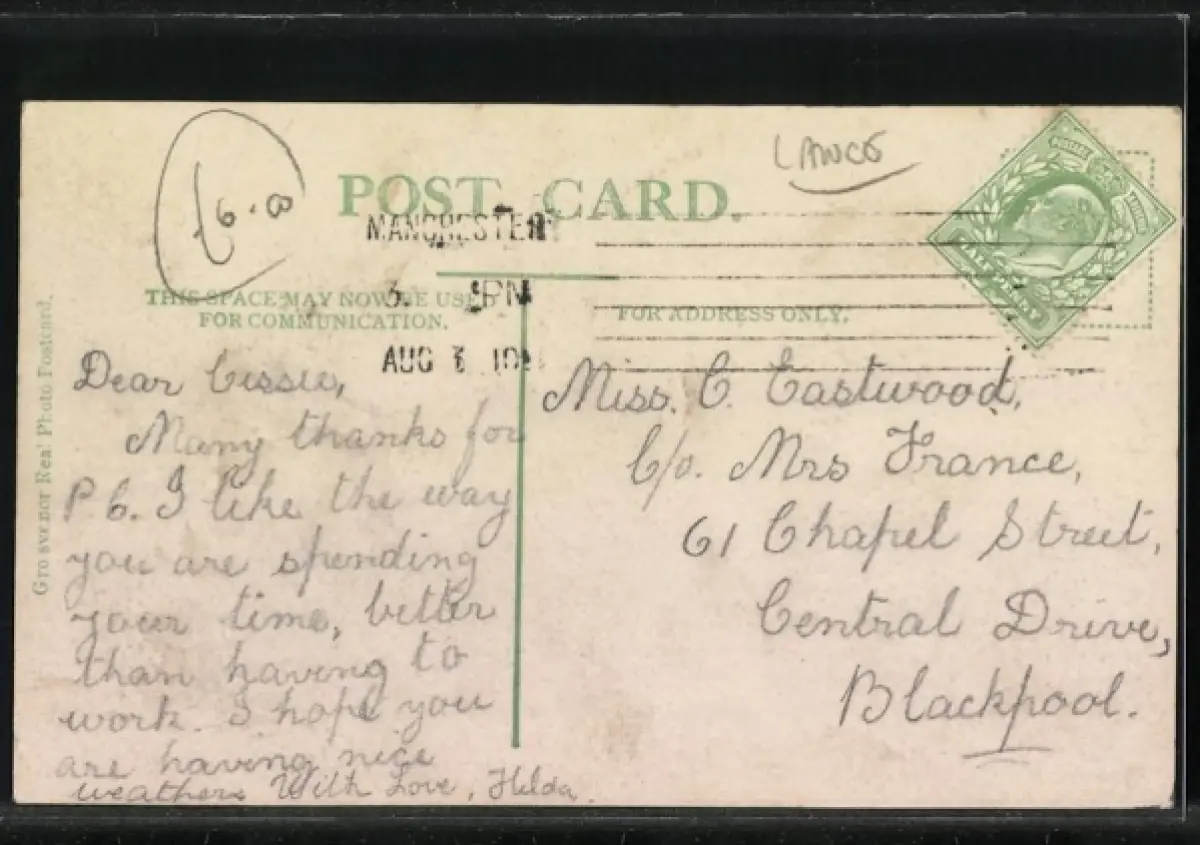 LANCS
£6.00
POST CARD.
MANCHESTER
PM
AUG
THIS SPACE MAY NOW BE USED
FOR COMMUNICATION.
FOR ADDRESS ONLY.
Grosvenor Real Photo Postcard.
Dear Cissie,
Many thanks for
P.C. I like the way
you are spending
your time, better
than having to
work. I hope you
are having nice
weather. With Love, Hilda.
Miss. C. Eastwood,
C/o. Mrs France,
61 Chapel Street,
Central Drive,
Blackpool.
POSTAGE
HALF PENNY